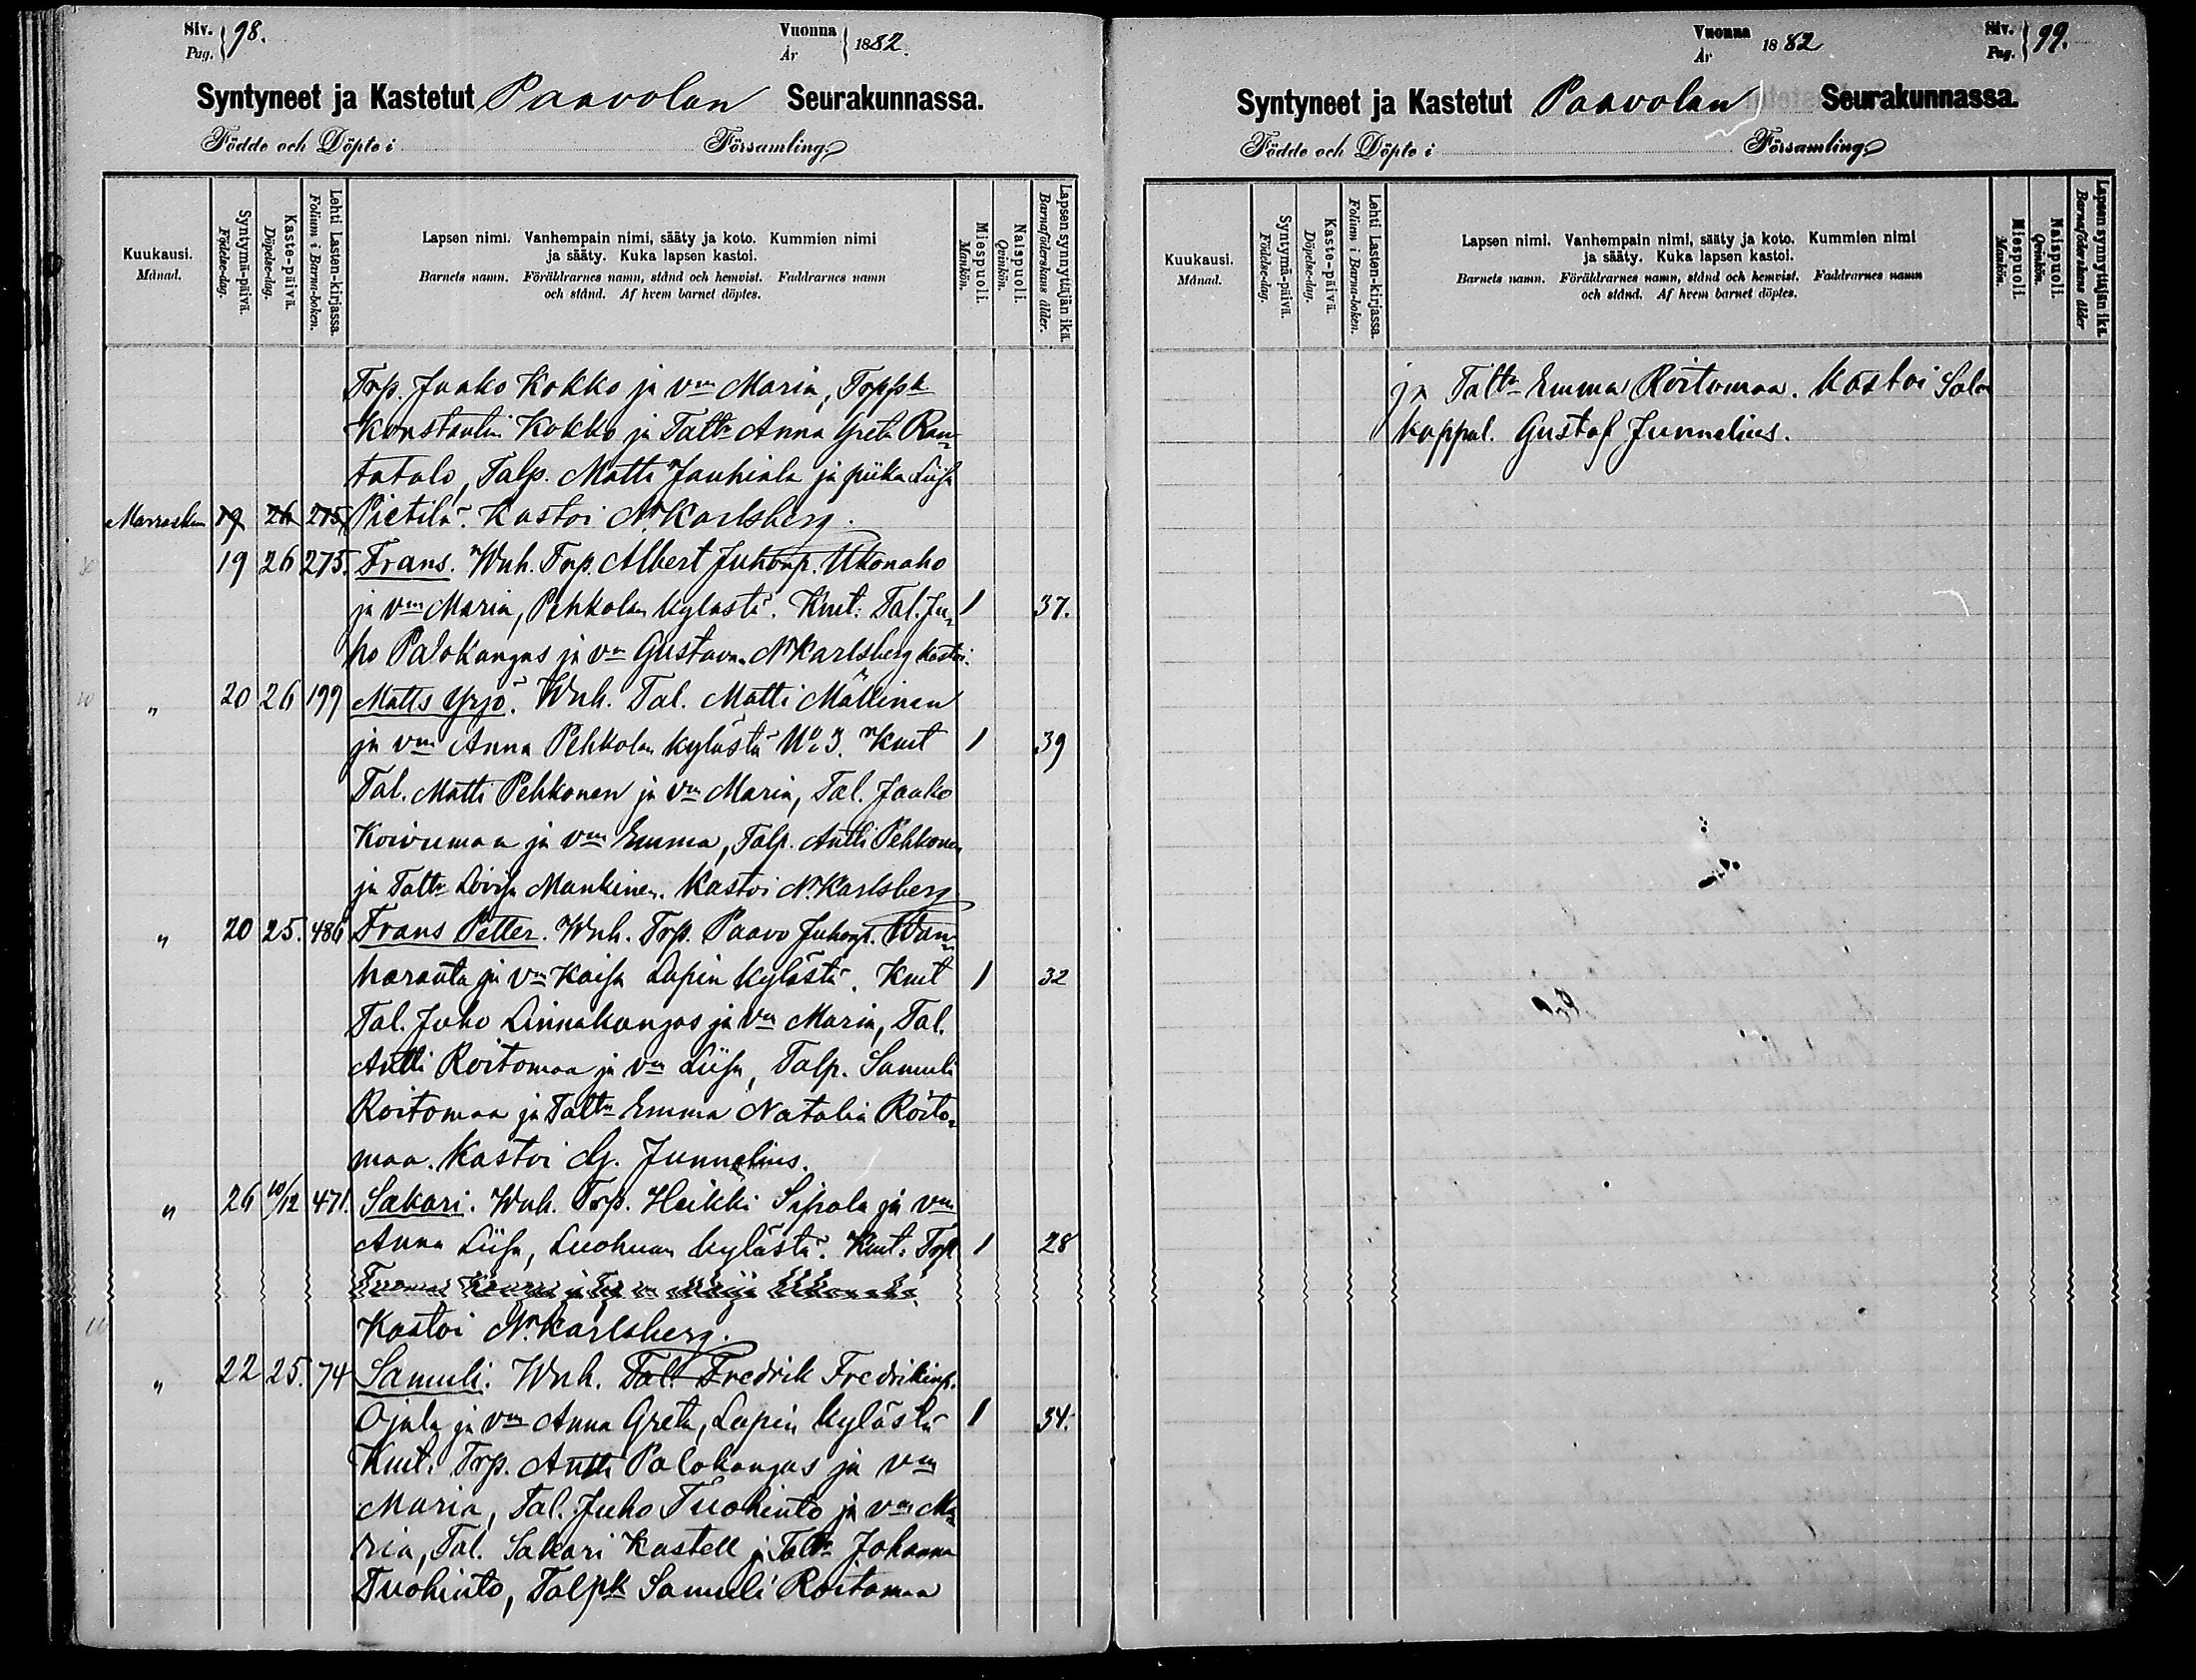 Siv. Pag. 98.
Vuonna År 1882.
Syntyneet ja Kastetut Paavolan Seurakunnassa.
Födde och Döpte i Församling.
Kuukausi. Månad.
Syntymä-päivä. Födelse-dag.
Kaste-päivä. Döpelse-dag.
Lehti Lasten-kirjassa. Folium i Barna-boken.
Lapsen nimi. Vanhempain nimi, sääty ja koto. Kummien nimi
ja sääty. Kuka lapsen kastoi.
Barnets namn. Föräldrarnes namn, stånd och hemvist. Faddrarnes namn
och stånd. Af hvem barnet döptes.
Miespuoli. Mankön.
Naispuoli. Qvinkön.
Lapsen synnyttäjän ikä. Barnaföderskans ålder.
Trp. Jaako Kokko ja vm Maria, Trppk
Konstantin Kokko ja Taltr Anna Greta Ran-
tatalo, Talp. Matti Jauhiala ja piika Liisa
Marraskuu 19 26 275 Pietilä. Kastoi N. Karlsberg.
19 26 275. Frans. Wnh. Trp. Albert Juhonp. Ukonaho
ja vm Maria, Pehkolan kylästä. Kmt: Tal. Ju- 1 37.
ho Palokangas ja vm Gustava. N. Karlsberg kastoi.
" 20 26 199 Matts Yrjö. Wnh. Tal. Matti Mällinen
ja vm Anna Pehkolan kylästä No 3. Kmt 1 39
Tal. Matti Pehkonen ja vm Maria, Tal. Jaako
Koivumaa ja vm Emma, Talp. Antti Pehkonen
ja Taltr Lovisa Mankinen. Kastoi N. Karlsberg
" 20 25. 486 Frans Petter. Wnh. Trp. Paavo Juhonp. Wan-
haranta ja vm Kaisa Lapin kylästä. Kmt 1 32
Tal. Juho Linnakangas ja vm Maria, Tal.
Antti Roitomaa ja vm Liisa, Talp. Samuli
Roitomaa ja Taltr Emma Natalia Roito-
maa. Kastoi G. Junnelius.
" 26 10/12 471. Sakari. Wnh. Trp. Heikki Sipola ja vm
Anna Liisa, Luohuan kylästä. Kmt: Trp 1 28
Kastoi N. Karlsberg.
" 22 25. 74 Samuli. Wnh. Tal. Fredrik Fredrikinp.
Ojala ja vm Anna Greta, Lapin kylästä 1 34.
Kmt. Trp. Antti Palokangas ja vm
Maria, Tal. Juho Tuohinto ja vm Ma-
ria, Tal. Sakari Kastell ja Taltr Johanna
Tuohinto, Talpk Samuli Roitomaa
Vuonna År 1882
Siv. Pag. 99.
Syntyneet ja Kastetut Paavolan Seurakunnassa.
Födde och Döpte i Församling.
Kuukausi. Månad.
Syntymä-päivä. Födelse-dag.
Kaste-päivä. Döpelse-dag.
Lehti Lasten-kirjassa. Folium i Barna-boken.
Lapsen nimi. Vanhempain nimi, sääty ja koto. Kummien nimi
ja sääty. Kuka lapsen kastoi.
Barnets namn. Föräldrarnes namn, stånd och hemvist. Faddrarnes namn
och stånd. Af hvem barnet döptes.
Miespuoli. Mankön.
Naispuoli. Qvinkön.
Lapsen synnyttäjän ikä. Barnaföderskans ålder
ja Taltr Emma Roitomaa. Kastoi Salon
kappal. Gustaf Junnelius.